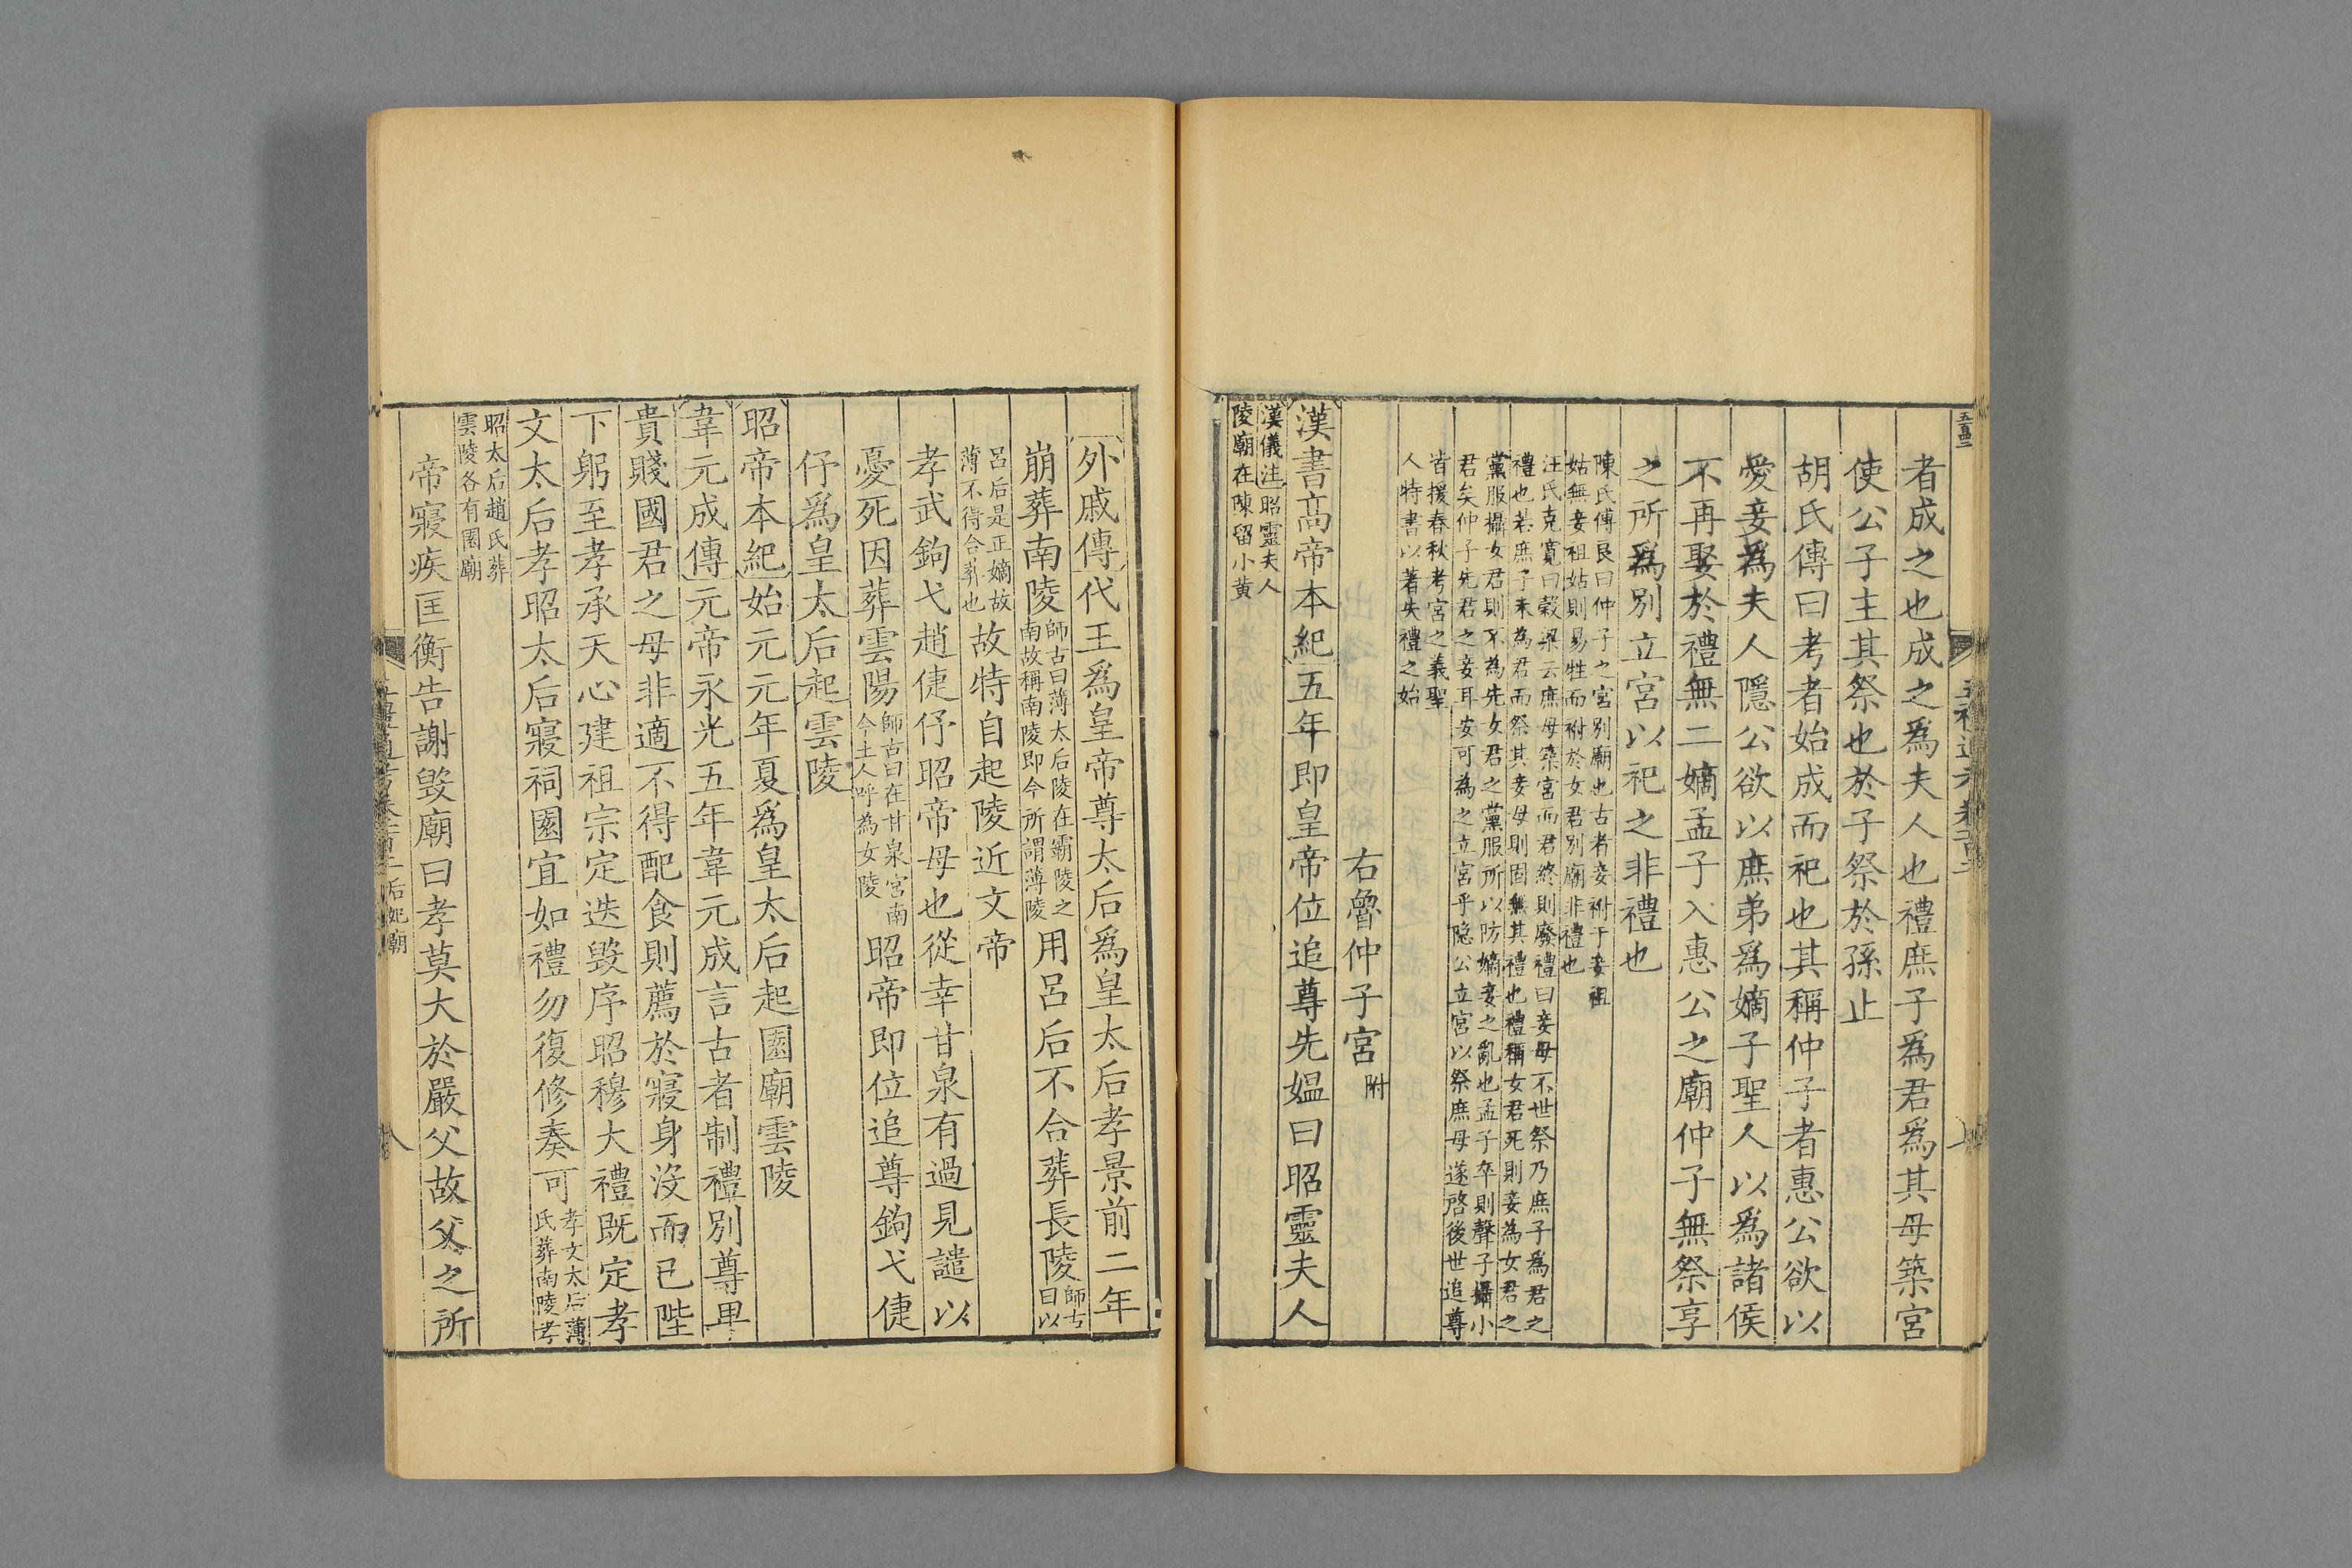 者成之也成之爲夫人也禮庶子爲君爲其母築宮
使公子主其祭也於子祭於孫止
胡氏傳曰考者始成而祀也其稱仲子者惠公欲以
愛妾爲夫人隱公欲以庶弟爲嫡子聖人以爲諸侯
不再娶於禮無二嫡孟子入惠公之廟仲子無祭享
之所爲別立宮以祀之非禮也
陳氏傅良曰仲子之宮別廟也古者妾祔于妾祖
姑無妾祖姑則易牲而祔於女君別廟非禮也
汪氏克寬曰榖梁云庶母築宮而君終則廢禮曰妾母不世祭乃庶子爲君之
禮也若庶子未為君而祭其妾母則固無其禮也禮稱女君死則妾為女君之
黨服攝女君則不為先女君之黨服所以防嫡妾之亂也孟子卒則聲子攝小
君矣仲子先君之妾耳安可為之立宮乎隐公立宮以祭庶母遂啓後世追尊
皆援春秋考宮之義聖
人特書以著失禮之始
右魯仲子宮附
漢書高帝本紀五年即皇帝位追尊先媼曰昭靈夫人
漢儀注昭靈夫人
陵廟在陳留小黄
外戚傳代王爲皇帝尊太后爲皇太后孝景前二年
崩葬南陵師古曰薄太后陵在霸陵之
南故稱南陵即今所謂薄陵用呂后不合葬長陵師古
曰以
呂后是正嫡故
薄不得合葬也故特自起陵近文帝
孝武鉤弋趙倢伃昭帝母也從幸甘泉有過見譴以
憂死因葬雲陽師古曰在甘泉宮南
今土人呼為女陵昭帝即位追尊鉤弋倢
伃爲皇太后起雲陵
昭帝本紀始元元年夏爲皇太后起園廟雲陵
韋元成傳元帝永光五年韋元成言古者制禮別尊卑
貴賤國君之母非適不得配食則薦於寢身沒而已陛
下躬至孝承天心建祖宗定迭毀序昭穆大禮既定孝
文太后孝昭太后寢祠園宜如禮勿復修奏可孝文太后薄
氏葬南陵孝
昭太后趙氏葬
雲陵各有園廟
帝寢疾匡衡告謝毀廟曰孝莫大於嚴父故父之所
后妃廟
八